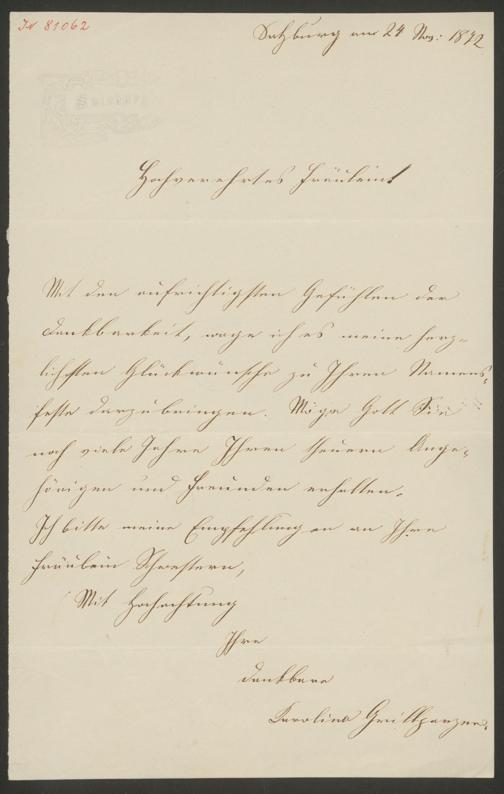 IN 81062
Salzburg am 24 Nov: 1872
Hochverehrtes Fräulein!
Mit den aufrichtigsten Gefühlen der
Dankbarkeit, wage ich es meine herz-
lichsten Glückwünsche zu Ihren Namens-
feste darzubringen. Möge Gott Sie
noch viele Jahre Ihren theuern Ange-
hörigen und Freunden erhalten.
Ich bitte meine Empfehlungen an Ihre
Fräulein Schwestern,
Mit Hochachtung
Ihre
dankbare
Karolina Grillparzer.